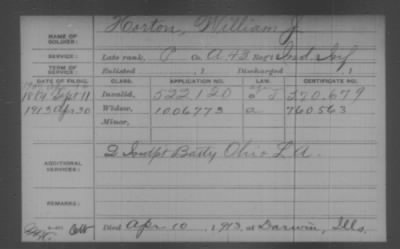 NAME OF SOLDIER: Horton, William J.
SERVICE: Late rank, P Co. A, 43 Reg't Ind. Inf
TERM OF SERVICE: Enlisted , 1 Discharged , 1
DATE OF FILING. CLASS. APPLICATION NO. LAW. CERTIFICATE NO.
1884 Sept 11 Invalid, 522120 J. 370.679
1913 Apr 30 Widow, 1006773 a 760563
Minor,
ADDITIONAL SERVICES: 2 Indpt Batty Ohio L A.
REMARKS:
Died Apr 10, 1913, at Darwin, Ills.